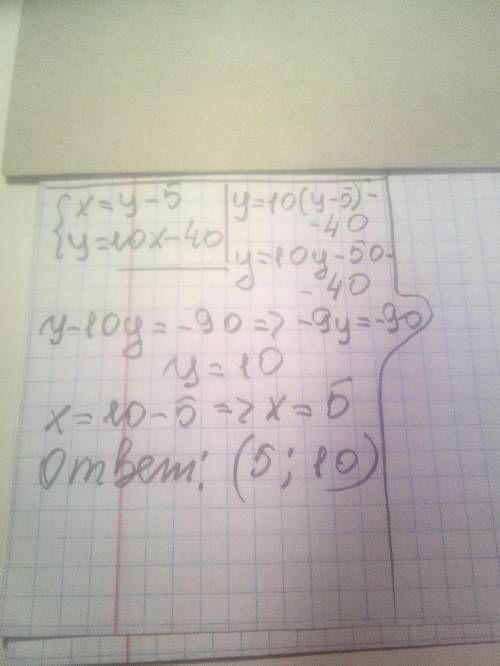 { x = y - 5
y = 10x - 40
y = 10(y-5) -
- 40
y = 10y - 50 -
- 40
y - 10y = -90 => -9y = -90
y = 10
x = 10 - 5 => x = 5
Ответ: (5; 10)